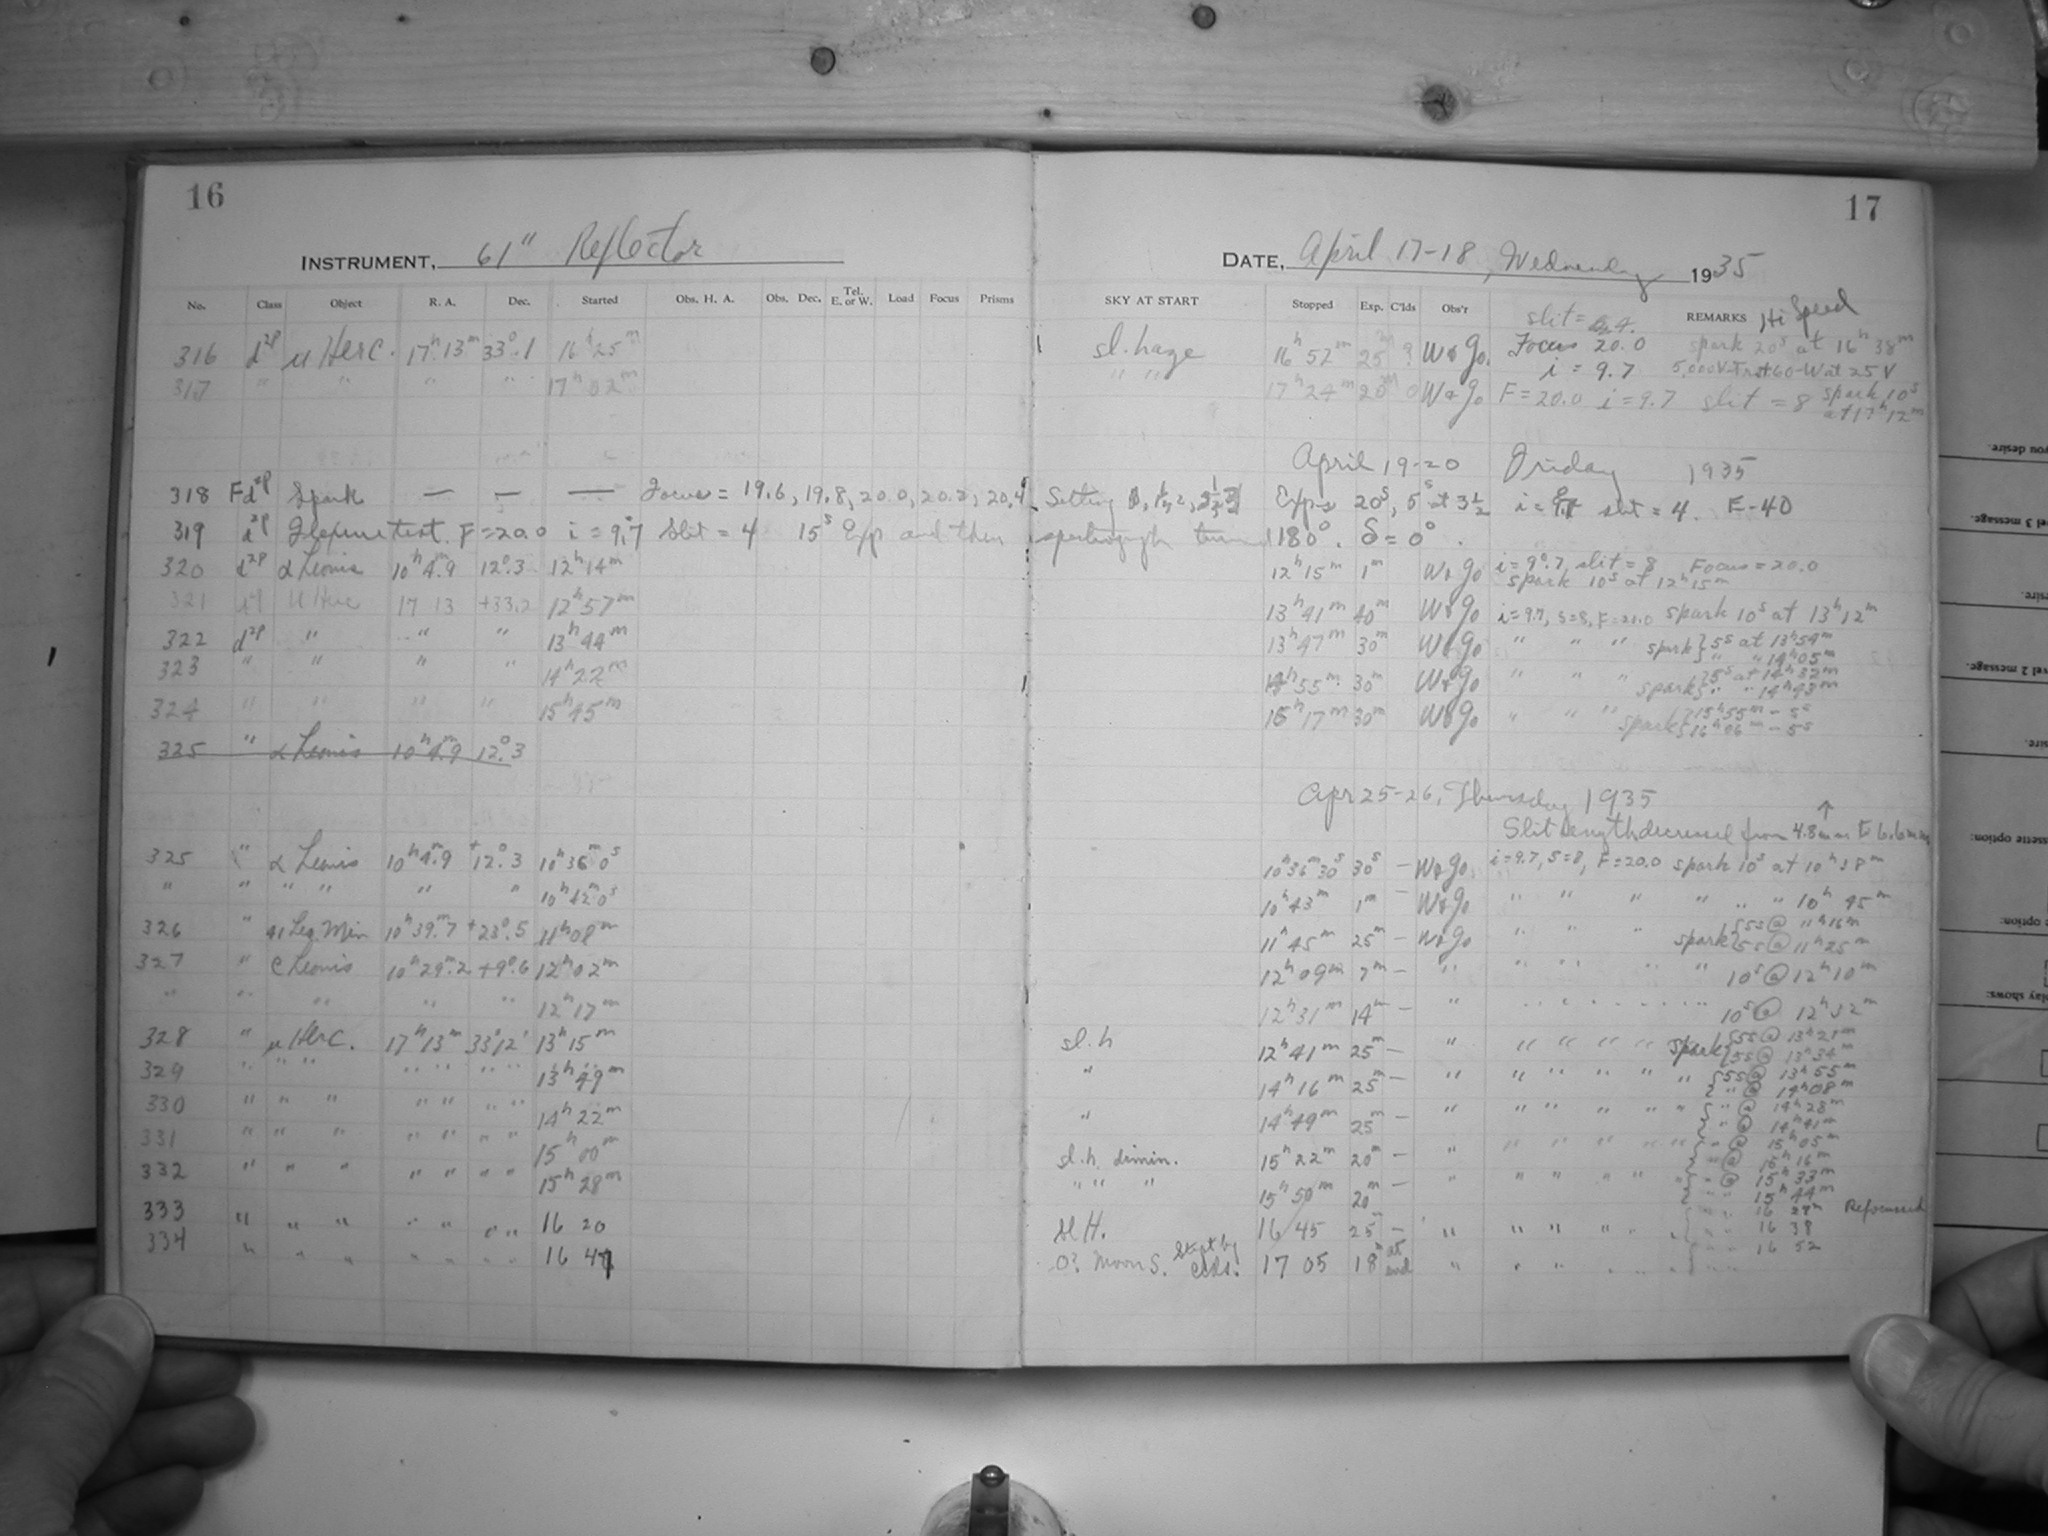 16
INSTRUMENT, 61" Reflector
No. Class Object R. A. Dec. Started Obs. H. A. Obs. Dec. Tel. E. or W. Load Focus Prisms
316 d²ᵖ u Herc. 17ʰ 13ᵐ 33°.1 16ʰ 25ᵐ
317 " " " " 17ʰ 02ᵐ
318 Fd²ᵖ Spark — — — Focus = 19.6, 19.8, 20.0, 20.2, 20.4
319 Flexure test. F = 20.0 i = 9.7 Slit = 4 15ˢ Exp and then
320 α Leonis 10ʰ 4ᵐ.9 12°.3 12ʰ 14ᵐ
321 u Herc 17 13 +33.2 12ʰ 57ᵐ
322 d²ᵖ " " " 13ʰ 44ᵐ
323 " " " " 14ʰ 22ᵐ
324 " " " " 15ʰ 45ᵐ
325 " α Leonis 10ʰ 4ᵐ.9 12°.3
325 " α Leonis 10ʰ 4ᵐ.9 +12°.3 10ʰ 36ᵐ 0ˢ
" " " " " " 10ʰ 42ᵐ 0ˢ
326 " 41 Leo Min 10ʰ 39ᵐ.7 +23°.5 11ʰ 08ᵐ
327 " Leonis 10ʰ 29ᵐ.2 +9°.6 12ʰ 02ᵐ
" " " " " 12ʰ 17ᵐ
328 " u Herc. 17ʰ 13ᵐ 33°12' 13ʰ 15ᵐ
329 " " " " " " " 13ʰ 49ᵐ
330 " " " " " " " 14ʰ 22ᵐ
331 " " " " " " " 15ʰ 00ᵐ
332 " " " " " " " 15ʰ 28ᵐ
333 " " " " " " " 16 20
334 " " " " " " " 16 47
17
DATE, April 17-18, Wednesday 1935
SKY AT START Stopped Exp. C'lds Obs'r REMARKS Hi Speed
slit =
sl. haze 16ʰ 52ᵐ 25ᵐ ? W & Jo. Focus 20.0 spark 20ˢ at 16ʰ 38ᵐ
i = 9.7 25 V
" " 17ʰ 24ᵐ 20ᵐ 0 W & Jo F = 20.0 i = 9.7 slit = 8 spark 10ˢ
at 17ʰ 12ᵐ
April 19-20 Friday 1935
Setting Exps 20ˢ, 5ˢ at 3½ slit = 4. E-40
spectrograph turned 180°. δ = 0°.
12ʰ 15ᵐ 1ᵐ W & Jo i = 9°.7, slit = 8 Focus = 20.0
spark 10ˢ at 12ʰ 15ᵐ
13ʰ 41ᵐ 40ᵐ W & Jo i = 9.7, S = 8, F = 20.0 spark 10ˢ at 13ʰ 12ᵐ
13ʰ 47ᵐ 30ᵐ W & Jo " " " spark } 5ˢ at 13ʰ 54ᵐ
" " 14ʰ 05ᵐ
14ʰ 55ᵐ 30ᵐ W & Jo " " " spark } 5ˢ at 14ʰ 32ᵐ
" " 14ʰ 43ᵐ
16ʰ 17ᵐ 30ᵐ W & Jo " " " spark { 15ʰ 55ᵐ - 5ˢ
16ʰ 06ᵐ - 5ˢ
Apr 25-26, Thursday 1935
Slit length decreased from 4.8mm to 6.6mm
10ʰ 36ᵐ 30ˢ 30ˢ — W & Jo. i = 9.7, S = 8, F = 20.0 spark 10ˢ at 10ʰ 38ᵐ
10ʰ 43ᵐ 1ᵐ — W & Jo " " " " " " 10ʰ 45ᵐ
11ʰ 45ᵐ 25ᵐ — W & Jo " " " spark { 5s @ 11ʰ 16ᵐ
5s @ 11ʰ 25ᵐ
12ʰ 09ᵐ 7ᵐ — " " " " " " 10ˢ @ 12ʰ 10ᵐ
12ʰ 31ᵐ 14ᵐ — " 10ˢ @ 12ʰ 32ᵐ
sl. h 12ʰ 41ᵐ 25ᵐ — " " " " " spark { 5s @ 13ʰ 21ᵐ
5s @ 13ʰ 34ᵐ
" 14ʰ 16ᵐ 25ᵐ — " " " " " " { 5s @ 13ʰ 55ᵐ
" @ 14ʰ 08ᵐ
" 14ʰ 49ᵐ 25ᵐ — " " " " " " { " @ 14ʰ 28ᵐ
" @ 14ʰ 41ᵐ
sl. h. dimin. 15ʰ 22ᵐ 20ᵐ — " " " " " " { " @ 15ʰ 05ᵐ
" @ 15ʰ 16ᵐ
" " " 15ʰ 50ᵐ 20ᵐ — " " " " " " { " @ 15ʰ 33ᵐ
" " 15ʰ 44ᵐ
sl H. 16 45 25ᵐ — " " " " " Refocussed
16 38
Moon S. Stopt by clds. 17 05 18ᵐ at end " 16 52
you desire.
el 3 message.
vel 2 message.
ssette option:
e option:
play shows: